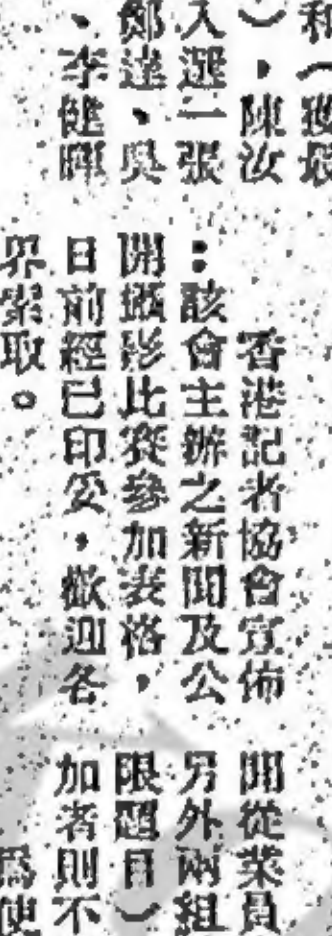 和（獲最
），陳汝
入選一張
鄭達、吳
、李健暉
香港記者協會宣佈
：該會主辦之新聞及公
開攝影比賽參加表格，
日前經已印妥，歡迎各
界索取。
開從業員
另外兩組
限題目）
加者則不
爲便